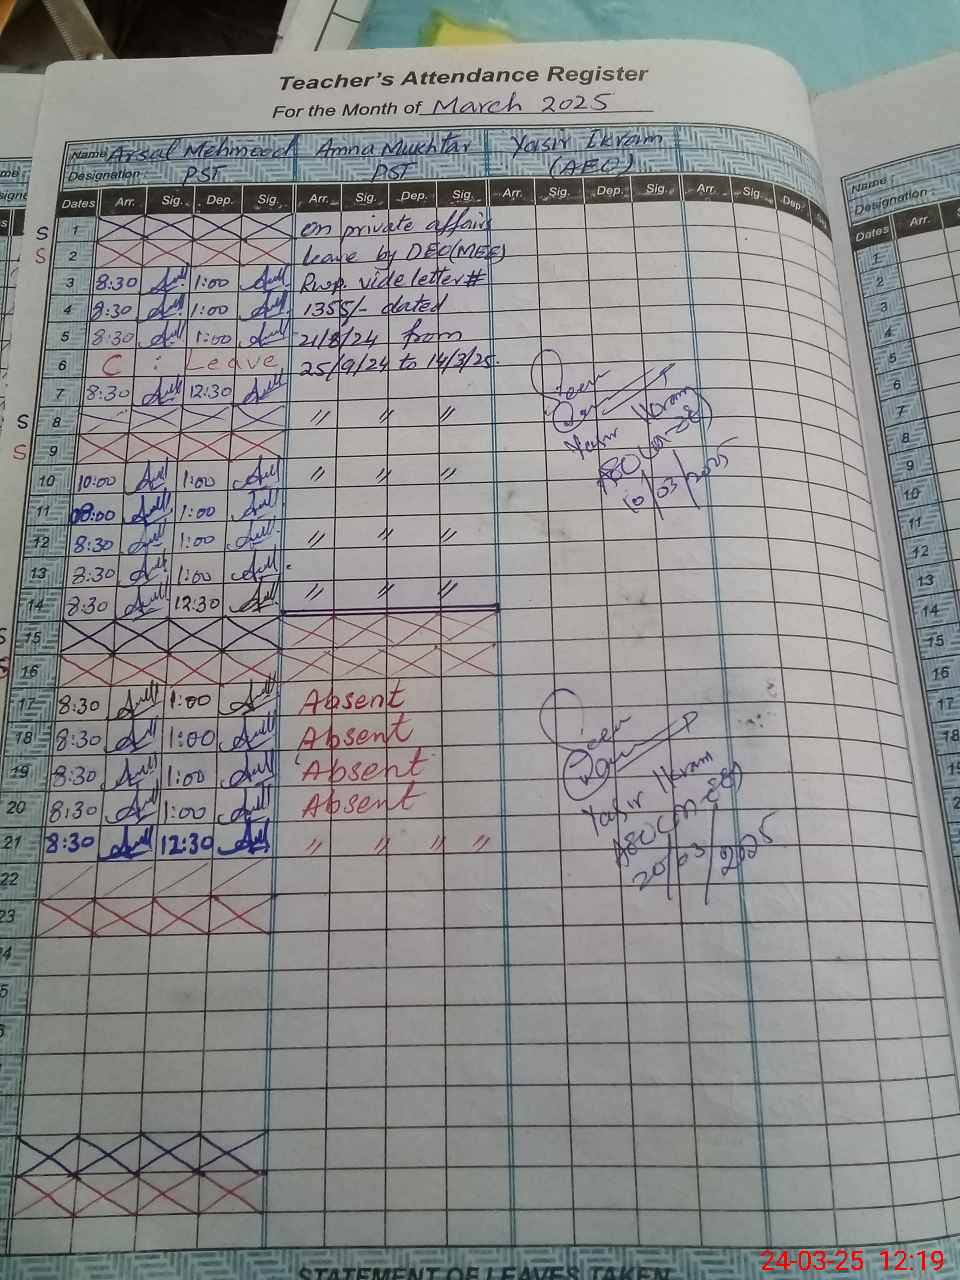 Teacher's Attendance Register
For the Month of March 2025
Name Arsal Mehmood Amna Mukhtar Yasir Ikram
Designation: PST PST (AEO)
Dates Arr. Sig. Dep. Sig. Arr. Sig. Dep. Sig. Arr. Sig. Dep. Sig. Arr. Sig. Dep. Sig.
S 1 on private affairs
S 2 leave by DEO(MEE)
3 8:30 1:00 Rwp. vide letter #
4 8:30 1:00 1355/- dated
5 8:30 1:00 21/8/24 from
6 C. Leave 25/9/24 to 14/3/25.
7 8:30 12:30
S 8 〃 〃 〃
S 9
10 10:00 1:00 〃 〃 〃
11 08:00 1:00
12 8:30 1:00 〃 〃 〃
13 8:30 1:00
14 8:30 12:30 〃 〃 〃
Seen
Yasir Ikram
10/03/2025
S 15
16
17 8:30 1:00 Absent
18 8:30 1:00 Absent
19 8:30 1:00 Absent
20 8:30 1:00 Absent
21 8:30 12:30 〃 〃 〃 〃
Seen
Yasir Ikram
20/03/2025
22
23
Name
Designation:
Dates Arr.
1
2
3
4
5
6
7
8
9
10
11
12
13
14
15
16
17
18
STATEMENT OF LEAVES TAKEN
24-03-25 12:19